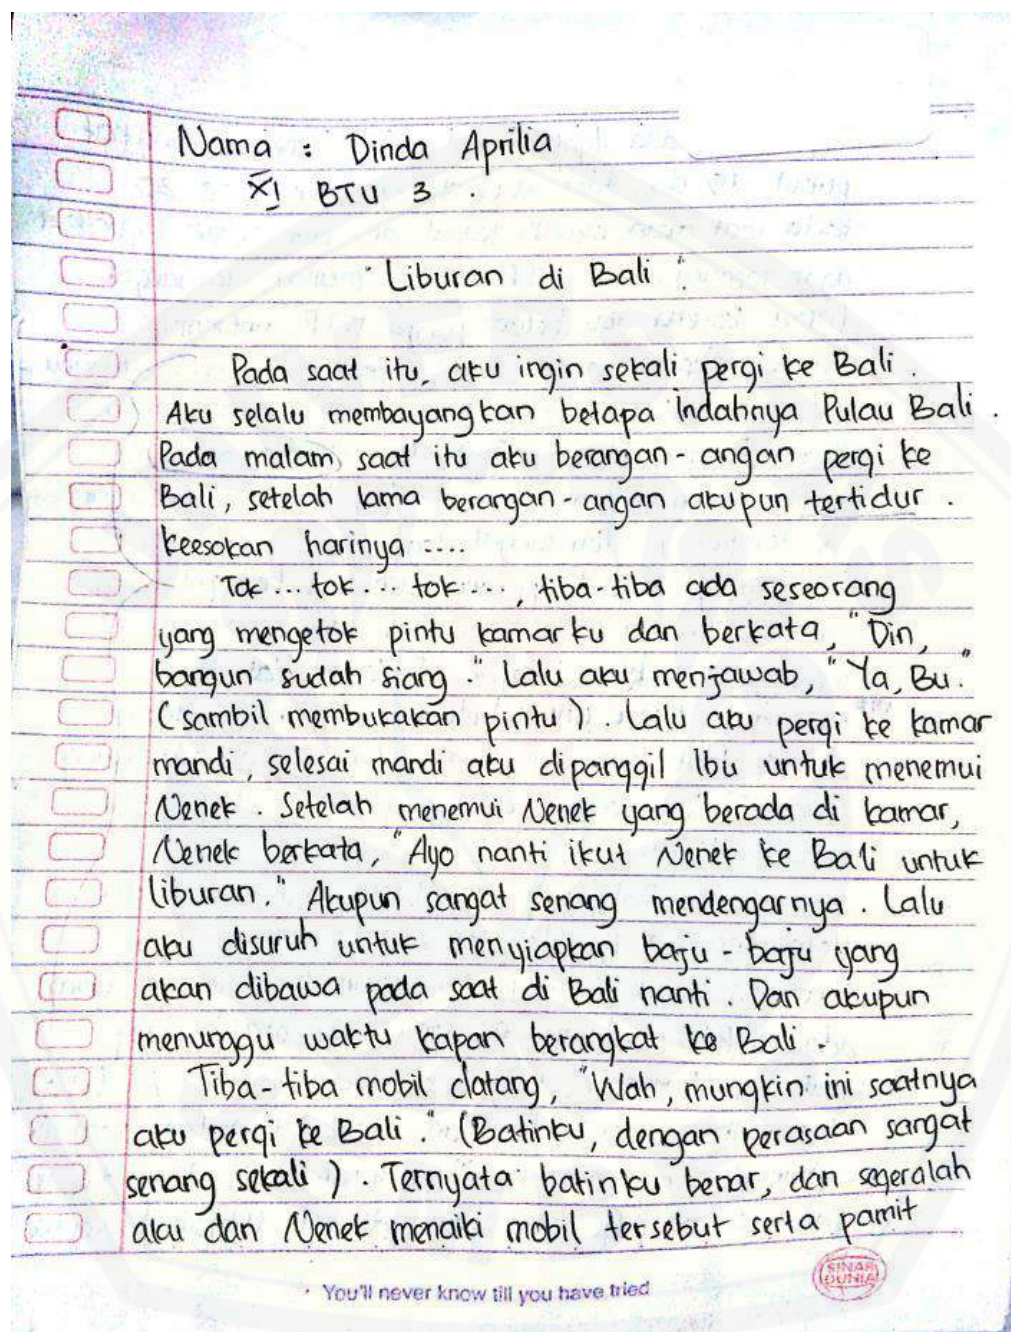 Nama : Dinda Aprilia
XI BTU 3 .
"Liburan di Bali"
Pada saat itu, aku ingin sekali pergi ke Bali .
Aku selalu membayangkan betapa indahnya Pulau Bali .
Pada malam saat itu aku berangan-angan pergi ke
Bali, setelah lama berangan-angan akupun tertidur .
Keesokan harinya ....
Tok ... tok ... tok ... , tiba-tiba ada seseorang
yang mengetok pintu kamarku dan berkata, "Din,
bangun sudah siang ." Lalu aku menjawab, "Ya, Bu."
(sambil membukakan pintu) . Lalu aku pergi ke kamar
mandi, selesai mandi aku dipanggil Ibu untuk menemui
Nenek . Setelah menemui Nenek yang berada di kamar,
Nenek berkata, "Ayo nanti ikut Nenek ke Bali untuk
liburan ." Akupun sangat senang mendengarnya . Lalu
aku disuruh untuk menyiapkan baju - baju yang
akan dibawa pada saat di Bali nanti . Dan akupun
menunggu waktu kapan berangkat ke Bali .
Tiba-tiba mobil datang, "Wah, mungkin ini saatnya
aku pergi ke Bali ." (Batinku, dengan perasaan sangat
senang sekali) . Ternyata batinku benar, dan segeralah
aku dan Nenek menaiki mobil tersebut serta pamit
You'll never know till you have tried
SINAR
DUNIA